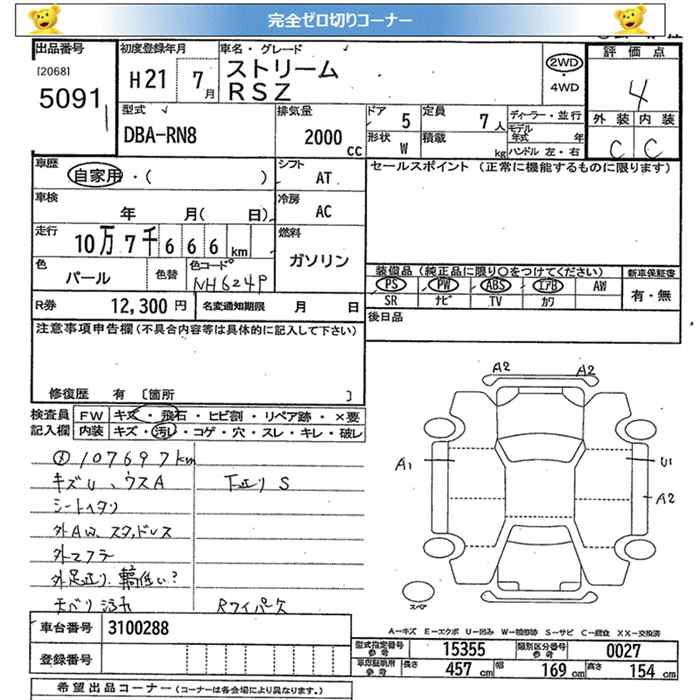 完全ゼロ切りコーナー
出品番号 初度登録年月 車名・グレード 評価点
[2068] 5091 H21 7月 ストリーム RSZ 2WD ・ 4WD 4
外装 内装
C C
型式 排気量 ドア 5 定員 7人 ディーラー・並行
DBA-RN8 2000cc 形状 W 積載 kg モデル年式 年
ハンドル 左・右
車歴 自家用・( ) シフト AT セールスポイント (正常に機能するものに限ります)
車検 年 月( 日) 冷房 AC
走行 10万7千666km 燃料 ガソリン
色 パール 色替 色コード NH624P
装備品(純正品に限り○をつけてください) 新車保証書
PS PW ABS エアB AW 有・無
SR ナビ TV カワ
R券 12,300円 名変通知期限 月 日
後日品
注意事項申告欄(不具合内容等は具体的に記入して下さい)
修復歴 有 〔箇所 〕
検査員 FW キズ・飛石・ヒビ割・リペア跡・×要
記入欄 内装 キズ・汚レ・コゲ・穴・スレ・キレ・破レ
107697km
キズU、ウスA 下廻りS
シートヘタリ
外AW、スタッドレス
外マフラ
外足廻り、車高低い?
天ベリ汚れ
A2 A2
A1 U1
A2
スペア
車台番号 3100288
登録番号
A-キズ E-エクボ U-凹み W-補修跡 S-サビ C-腐食 XX-交換済
型式指定番号 参考 15355 類別区分番号 参考 0027
車庫証明用 参考 長さ 457 幅 169 高さ 154 cm
希望出品コーナー(コーナーは各会場により異なります。)